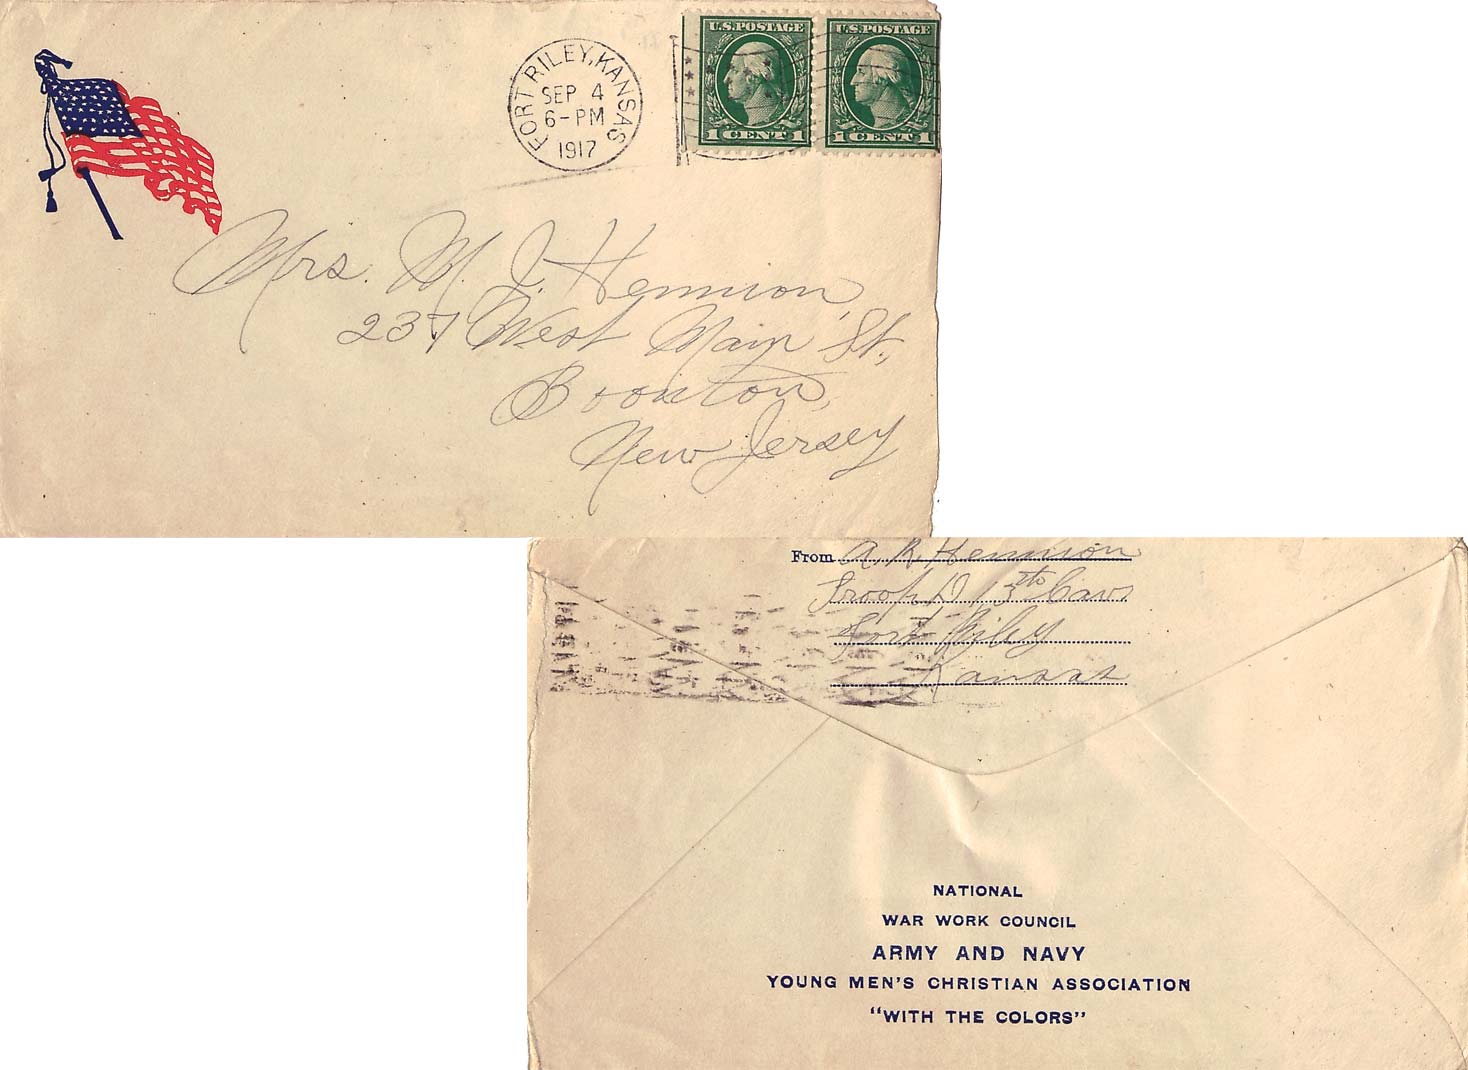 FORT RILEY, KANSAS
SEP 4
6-PM
1917
U.S. POSTAGE
1 CENT 1
U.S. POSTAGE
1 CENT 1
Mrs. M. J. Hennion,
237 West Main St.,
Boonton,
New Jersey
From A. R. Hennion
Troop D, 13th Cav.
Fort Riley
Kansas
NATIONAL
WAR WORK COUNCIL
ARMY AND NAVY
YOUNG MEN'S CHRISTIAN ASSOCIATION
"WITH THE COLORS"